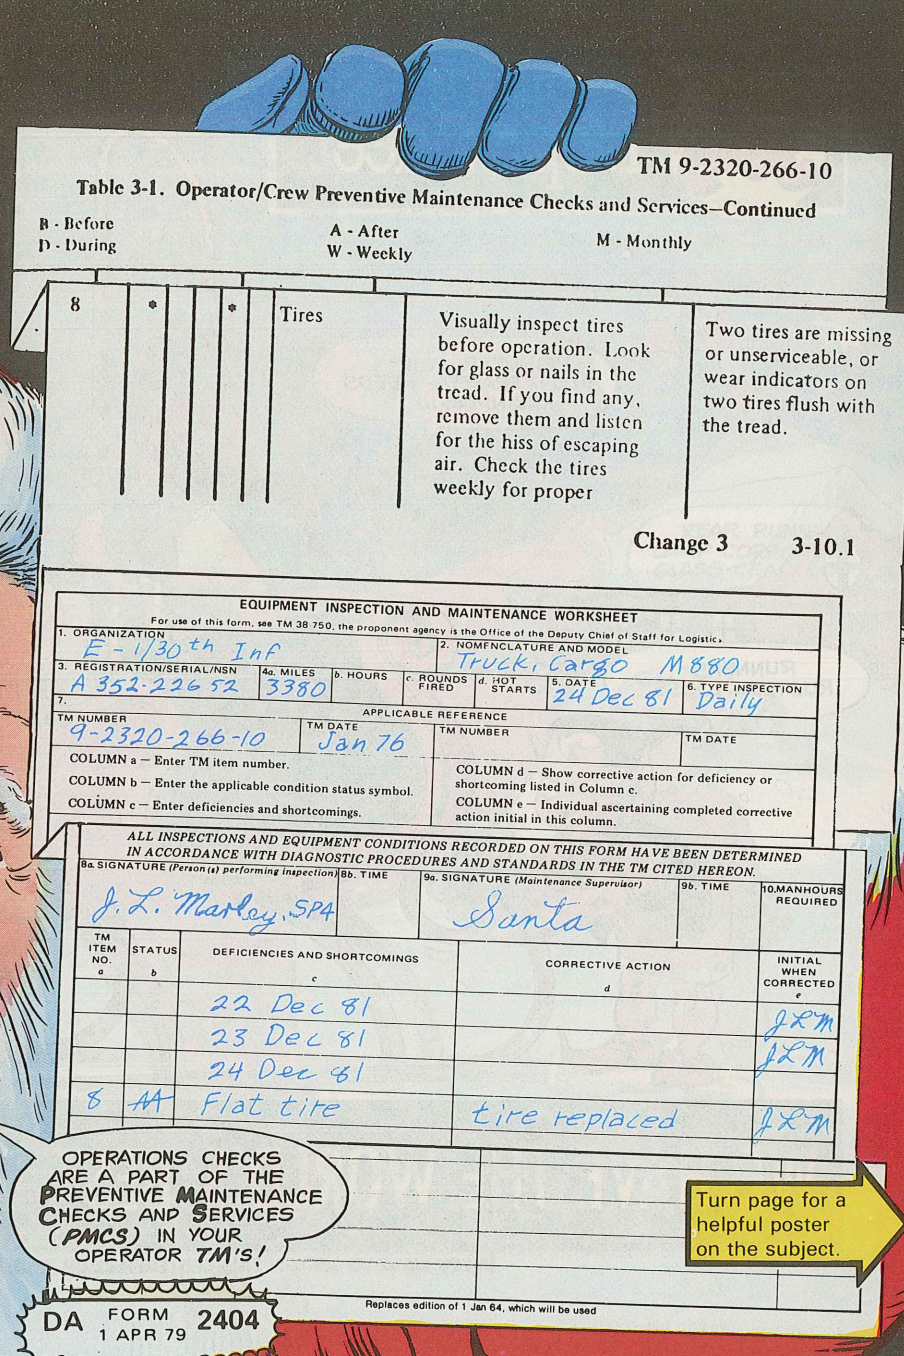 TM 9-2320-266-10
Table 3-1. Operator/Crew Preventive Maintenance Checks and Services—Continued
B - Before
D - During
A - After
W - Weekly
M - Monthly
8 * * Tires
Visually inspect tires
before operation. Look
for glass or nails in the
tread. If you find any,
remove them and listen
for the hiss of escaping
air. Check the tires
weekly for proper
Two tires are missing
or unserviceable, or
wear indicators on
two tires flush with
the tread.
Change 3 3-10.1
EQUIPMENT INSPECTION AND MAINTENANCE WORKSHEET
For use of this form, see TM 38-750, the proponent agency is the Office of the Deputy Chief of Staff for Logistic.
1. ORGANIZATION
E - 1/30th Inf
2. NOMENCLATURE AND MODEL
Truck, Cargo M880
3. REGISTRATION/SERIAL/NSN
A 352-226 52
4a. MILES
3380
b. HOURS
c. ROUNDS
FIRED
d. HOT
STARTS
5. DATE
24 Dec 81
6. TYPE INSPECTION
Daily
7. APPLICABLE REFERENCE
TM NUMBER
9-2320-266-10
TM DATE
Jan 76
TM NUMBER
TM DATE
COLUMN a — Enter TM item number.
COLUMN b — Enter the applicable condition status symbol.
COLUMN c — Enter deficiencies and shortcomings.
COLUMN d — Show corrective action for deficiency or
shortcoming listed in Column c.
COLUMN e — Individual ascertaining completed corrective
action initial in this column.
ALL INSPECTIONS AND EQUIPMENT CONDITIONS RECORDED ON THIS FORM HAVE BEEN DETERMINED
IN ACCORDANCE WITH DIAGNOSTIC PROCEDURES AND STANDARDS IN THE TM CITED HEREON.
8a. SIGNATURE (Person(s) performing inspection)
J. L. Marley, SP4
8b. TIME
9a. SIGNATURE (Maintenance Supervisor)
Santa
9b. TIME
10. MANHOURS
REQUIRED
TM
ITEM
NO.
a
STATUS
b
DEFICIENCIES AND SHORTCOMINGS
c
CORRECTIVE ACTION
d
INITIAL
WHEN
CORRECTED
e
22 Dec 81 JLM
23 Dec 81 JLM
24 Dec 81
8 Flat tire tire replaced JLM
OPERATIONS CHECKS
ARE A PART OF THE
PREVENTIVE MAINTENANCE
CHECKS AND SERVICES
(PMCS) IN YOUR
OPERATOR TM'S!
Turn page for a
helpful poster
on the subject.
DA FORM 2404
1 APR 79
Replaces edition of 1 Jan 64, which will be used